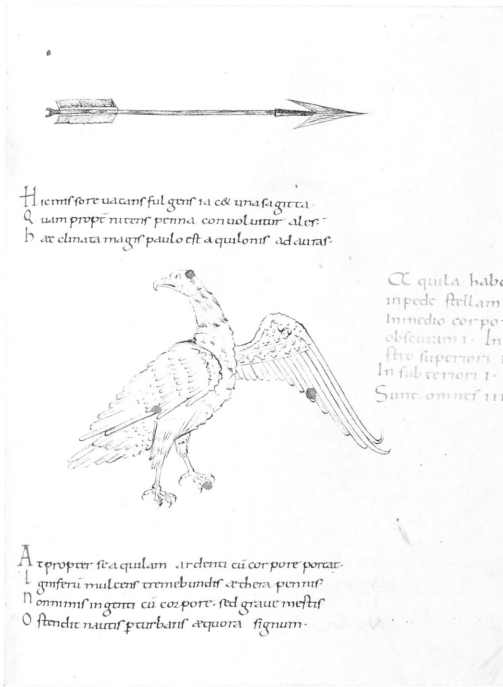 Hic missore uacans fulgens iac& una sagitta.
Quam propt̄ nitens penna conuoluitur ales.
hæc clinata magis paulo est aquilonis ad auras.
Æquila habe
in pede stellam
In medio corpo
obscuram i. In
stro superiori
In sub teriori i.
Sunt omnes iii
At propter se aquilam ardenti cū corpore portat.
Igniferū mulcens tremebundis æthera pennis
non nimis ingenti cū corpore. sed graue mestis
Ostendit nautis ꝑturbans æquora signum.